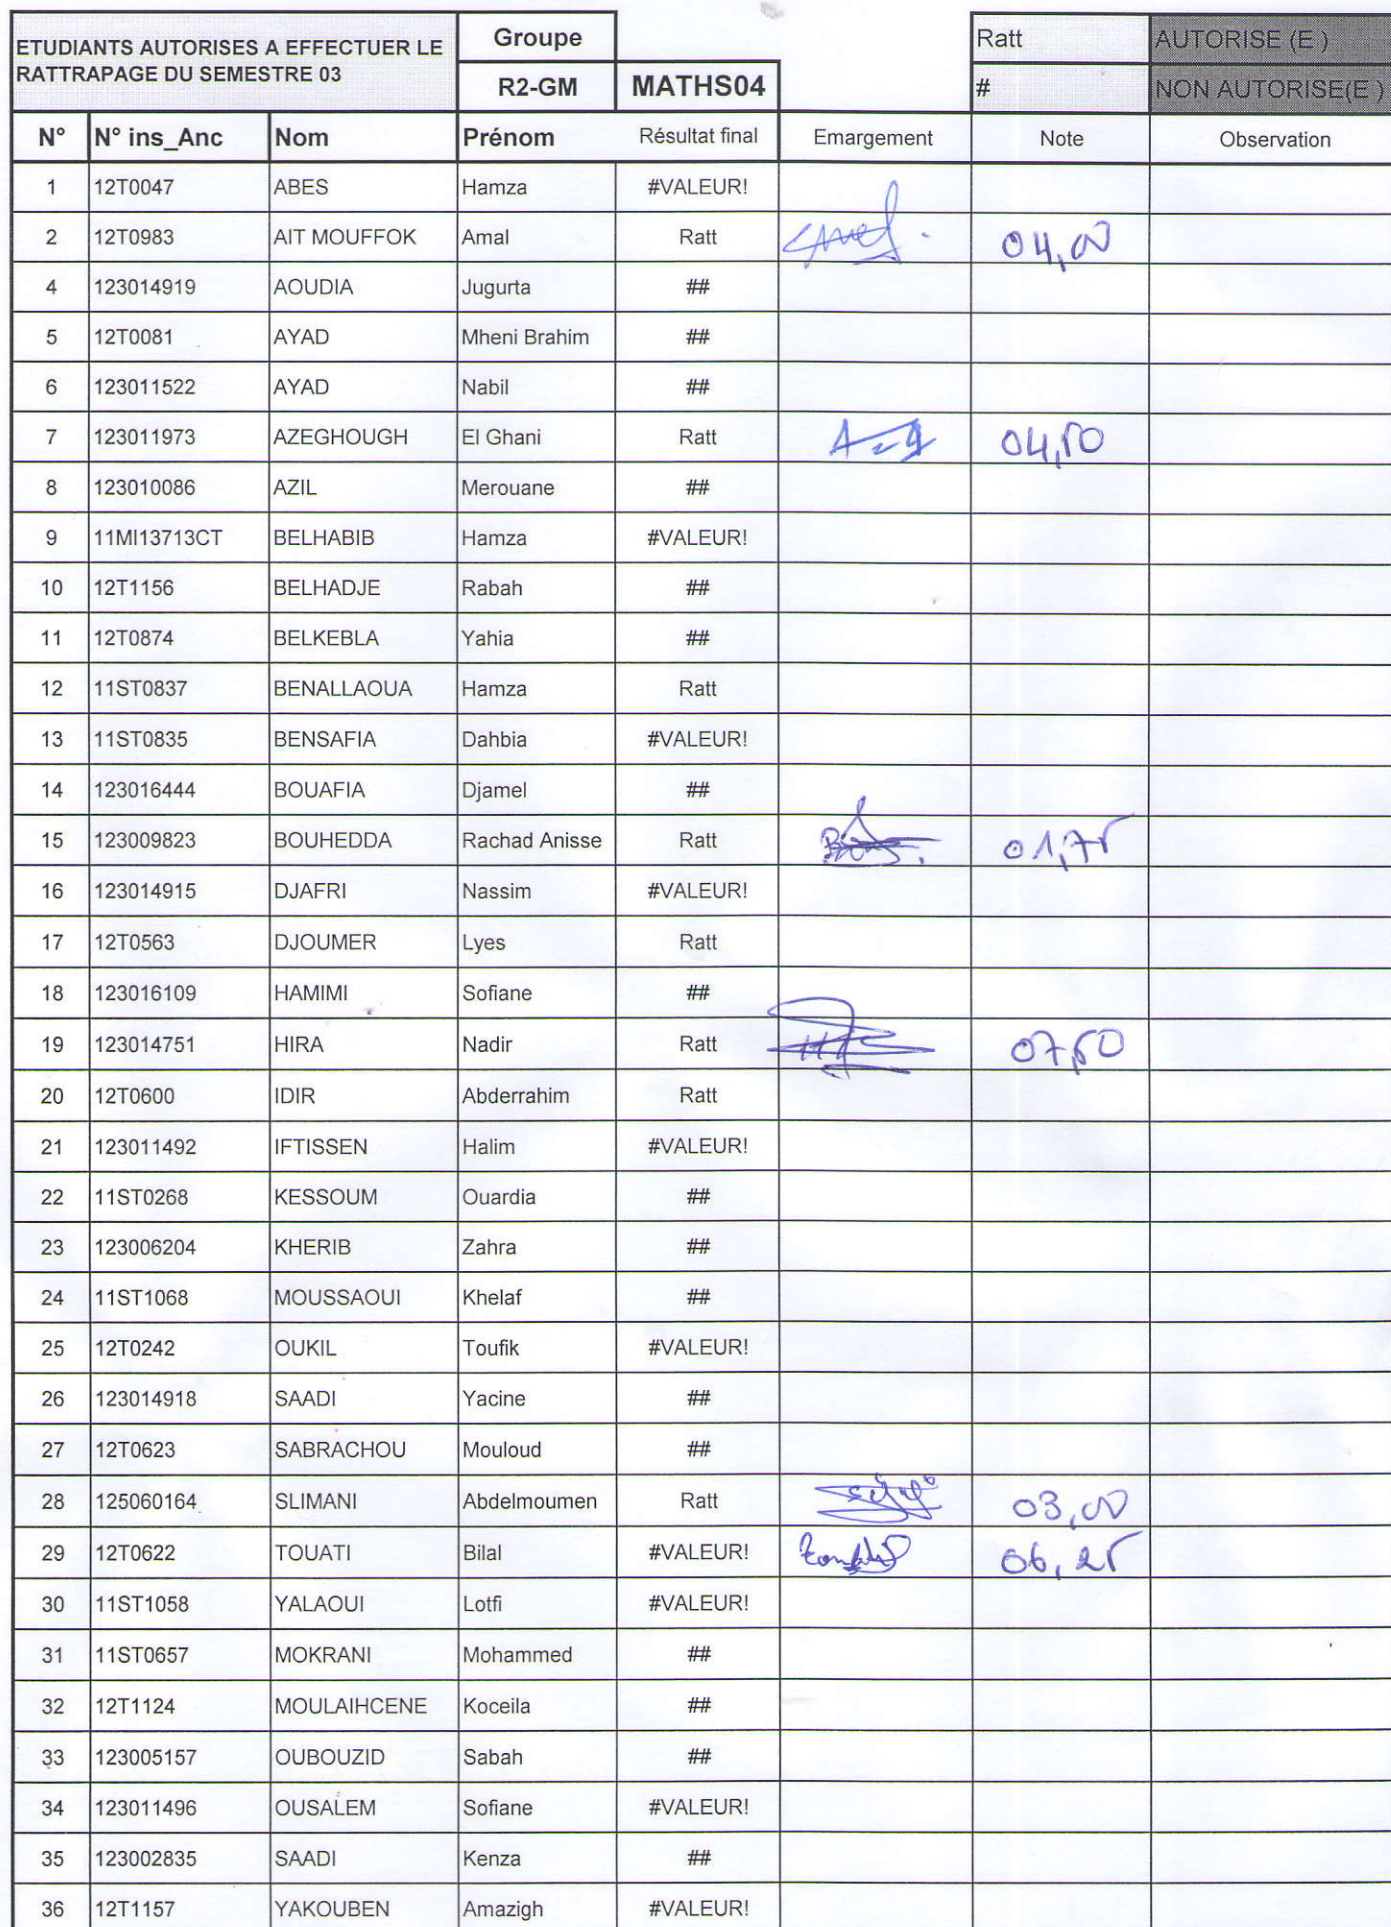 ETUDIANTS AUTORISES A EFFECTUER LE RATTRAPAGE DU SEMESTRE 03 Groupe Ratt AUTORISE (E )
R2-GM MATHS04 # NON AUTORISE(E )
N° N° ins_Anc Nom Prénom Résultat final Emargement Note Observation
1 12T0047 ABES Hamza #VALEUR!
2 12T0983 AIT MOUFFOK Amal Ratt 04,00
4 123014919 AOUDIA Jugurta ##
5 12T0081 AYAD Mheni Brahim ##
6 123011522 AYAD Nabil ##
7 123011973 AZEGHOUGH El Ghani Ratt 04,50
8 123010086 AZIL Merouane ##
9 11MI13713CT BELHABIB Hamza #VALEUR!
10 12T1156 BELHADJE Rabah ##
11 12T0874 BELKEBLA Yahia ##
12 11ST0837 BENALLAOUA Hamza Ratt
13 11ST0835 BENSAFIA Dahbia #VALEUR!
14 123016444 BOUAFIA Djamel ##
15 123009823 BOUHEDDA Rachad Anisse Ratt 01,75
16 123014915 DJAFRI Nassim #VALEUR!
17 12T0563 DJOUMER Lyes Ratt
18 123016109 HAMIMI Sofiane ##
19 123014751 HIRA Nadir Ratt 07,50
20 12T0600 IDIR Abderrahim Ratt
21 123011492 IFTISSEN Halim #VALEUR!
22 11ST0268 KESSOUM Ouardia ##
23 123006204 KHERIB Zahra ##
24 11ST1068 MOUSSAOUI Khelaf ##
25 12T0242 OUKIL Toufik #VALEUR!
26 123014918 SAADI Yacine ##
27 12T0623 SABRACHOU Mouloud ##
28 125060164 SLIMANI Abdelmoumen Ratt 03,00
29 12T0622 TOUATI Bilal #VALEUR! 06,25
30 11ST1058 YALAOUI Lotfi #VALEUR!
31 11ST0657 MOKRANI Mohammed ##
32 12T1124 MOULAIHCENE Koceila ##
33 123005157 OUBOUZID Sabah ##
34 123011496 OUSALEM Sofiane #VALEUR!
35 123002835 SAADI Kenza ##
36 12T1157 YAKOUBEN Amazigh #VALEUR!